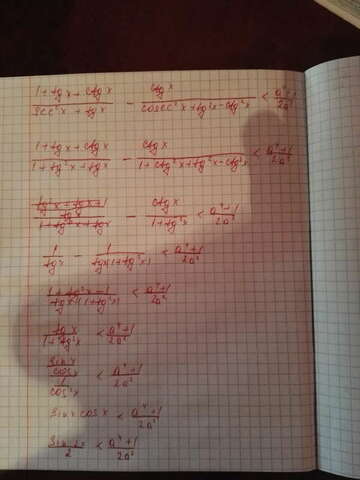 (1 + tg x + ctg x)/(sec²x + tg x) - ctg x/(cosec²x + tg²x - ctg²x) < (a⁴+1)/(2a²)
(1 + tg x + ctg x)/(1 + tg²x + tg x) - ctg x/(1 + ctg²x + tg²x - ctg²x) < (a⁴+1)/(2a²)
((tg²x + tg x + 1)/(tg x))/(1 + tg²x + tg x) - ctg x/(1 + tg²x) < (a⁴+1)/(2a²)
1/(tg x) - 1/(tg x(1 + tg²x)) < (a⁴+1)/(2a²)
(1 + tg²x - 1)/(tg x(1 + tg²x)) < (a⁴+1)/(2a²)
tg x/(1 + tg²x) < (a⁴+1)/(2a²)
(sin x/cos x)/(1/cos²x) < (a⁴+1)/(2a²)
sin x cos x < (a⁴+1)/(2a²)
sin 2x/2 < (a⁴+1)/(2a²)